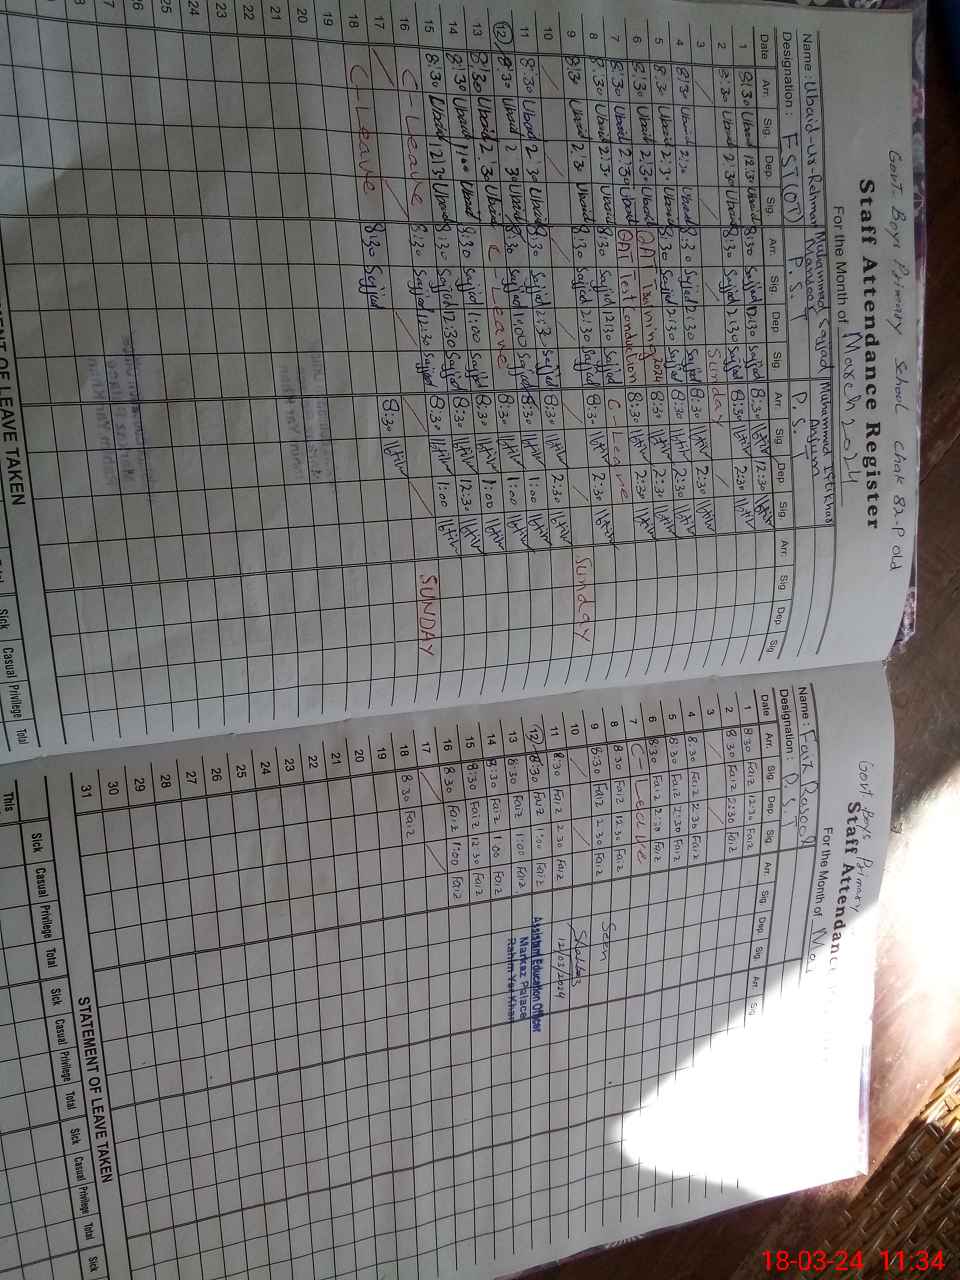 Govt. Boys Primary School Chak 82-P old
Staff Attendance Register
For the Month of March 2024
Name : Ubaid-Ur-Rehman Muhammad Sajjad Mansoor Muhammad Iftikhar Anjum
Designation : EST(OT) P.S.T P.S.T
Date Arr. Sig. Dep. Sig. Arr. Sig. Dep. Sig. Arr. Sig. Dep. Sig. Arr. Sig. Dep. Sig.
1 8:30 Ubaid 12:30 Ubaid 8:30 Sajjad 12:30 Sajjad 8:30 Iftikhar 12:30 Iftikhar
2 8:30 Ubaid 2:30 Ubaid 8:30 Sajjad 2:30 Sajjad 8:30 Iftikhar 2:30 Iftikhar
3 Sunday
4 8:30 Ubaid 2:30 Ubaid 8:30 Sajjad 2:30 Sajjad 8:30 Iftikhar 2:30 Iftikhar
5 8:30 Ubaid 2:30 Ubaid 8:30 Sajjad 2:30 Sajjad 8:30 Iftikhar 2:30 Iftikhar
6 8:30 Ubaid 2:30 Ubaid QAT Training 2024 8:30 Iftikhar 2:30 Iftikhar
7 8:30 Ubaid 2:30 Ubaid QAT Test Conduction 8:30 Iftikhar 2:30 Iftikhar
8 8:30 Ubaid 2:30 Ubaid 8:30 Sajjad 12:30 Sajjad C-Leave
9 8:30 Ubaid 2:30 Ubaid 8:30 Sajjad 2:30 Sajjad 8:30 Iftikhar 2:30 Iftikhar
10 Sunday
11 8:30 Ubaid 2:30 Ubaid 8:30 Sajjad 2:30 Sajjad 8:30 Iftikhar 2:30 Iftikhar
12 8:30 Ubaid 2:30 Ubaid 8:30 Sajjad 1:00 Sajjad 8:30 Iftikhar 1:00 Iftikhar
13 8:30 Ubaid 2:30 Ubaid C-Leave 8:30 Iftikhar 1:00 Iftikhar
14 8:30 Ubaid 1:00 Ubaid 8:30 Sajjad 1:00 Sajjad 8:30 Iftikhar 1:00 Iftikhar
15 8:30 Ubaid 12:30 Ubaid 8:30 Sajjad 12:30 Sajjad 8:30 Iftikhar 12:30 Iftikhar
16 C-Leave 8:30 Sajjad 12:30 Sajjad 8:30 Iftikhar 1:00 Iftikhar
17 SUNDAY
18 C-Leave 8:30 Sajjad 8:30 Iftikhar
19
20
21
22
23
24
25
STATEMENT OF LEAVE TAKEN
Sick Casual Privilege Total
Govt. Boys Primary
Staff Attendanc
For the Month of Mar
Name : Faiz Rasool
Designation : P.S.T
Date Arr. Sig. Dep. Sig. Arr. Sig. Dep. Sig. Arr. Sig.
1 8:30 Faiz 12:30 Faiz
2 8:30 Faiz 2:30 Faiz
3
4 8:30 Faiz 2:30 Faiz
5 8:30 Faiz 2:30 Faiz
6 8:30 Faiz 2:30 Faiz
7 C-Leave
8 8:30 Faiz 12:30 Faiz Seen
9 8:30 Faiz 2:30 Faiz
10 12/03/2024
11 8:30 Faiz 2:30 Faiz
12 8:30 Faiz 1:00 Faiz Assistant Education Officer
13 8:30 Faiz 1:00 Faiz Markaz Palace
Rahim Yar Khan
14 8:30 Faiz 1:00 Faiz
15 8:30 Faiz 12:30 Faiz
16 8:30 Faiz 1:00 Faiz
17
18 8:30 Faiz
19
20
21
22
23
24
25
26
27
28
29
30
31
STATEMENT OF LEAVE TAKEN
This Sick Casual Privilege Total Sick Casual Privilege Total Sick Casual Privilege Total Sick
18-03-24 11:34